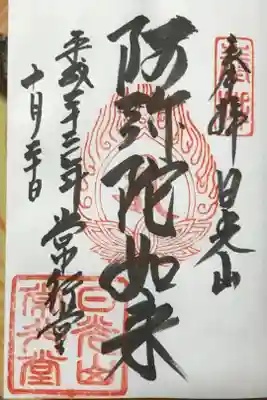 奉拝 日光山
阿弥陀如来
常行堂
平成二十三年
十月二十日
日光山